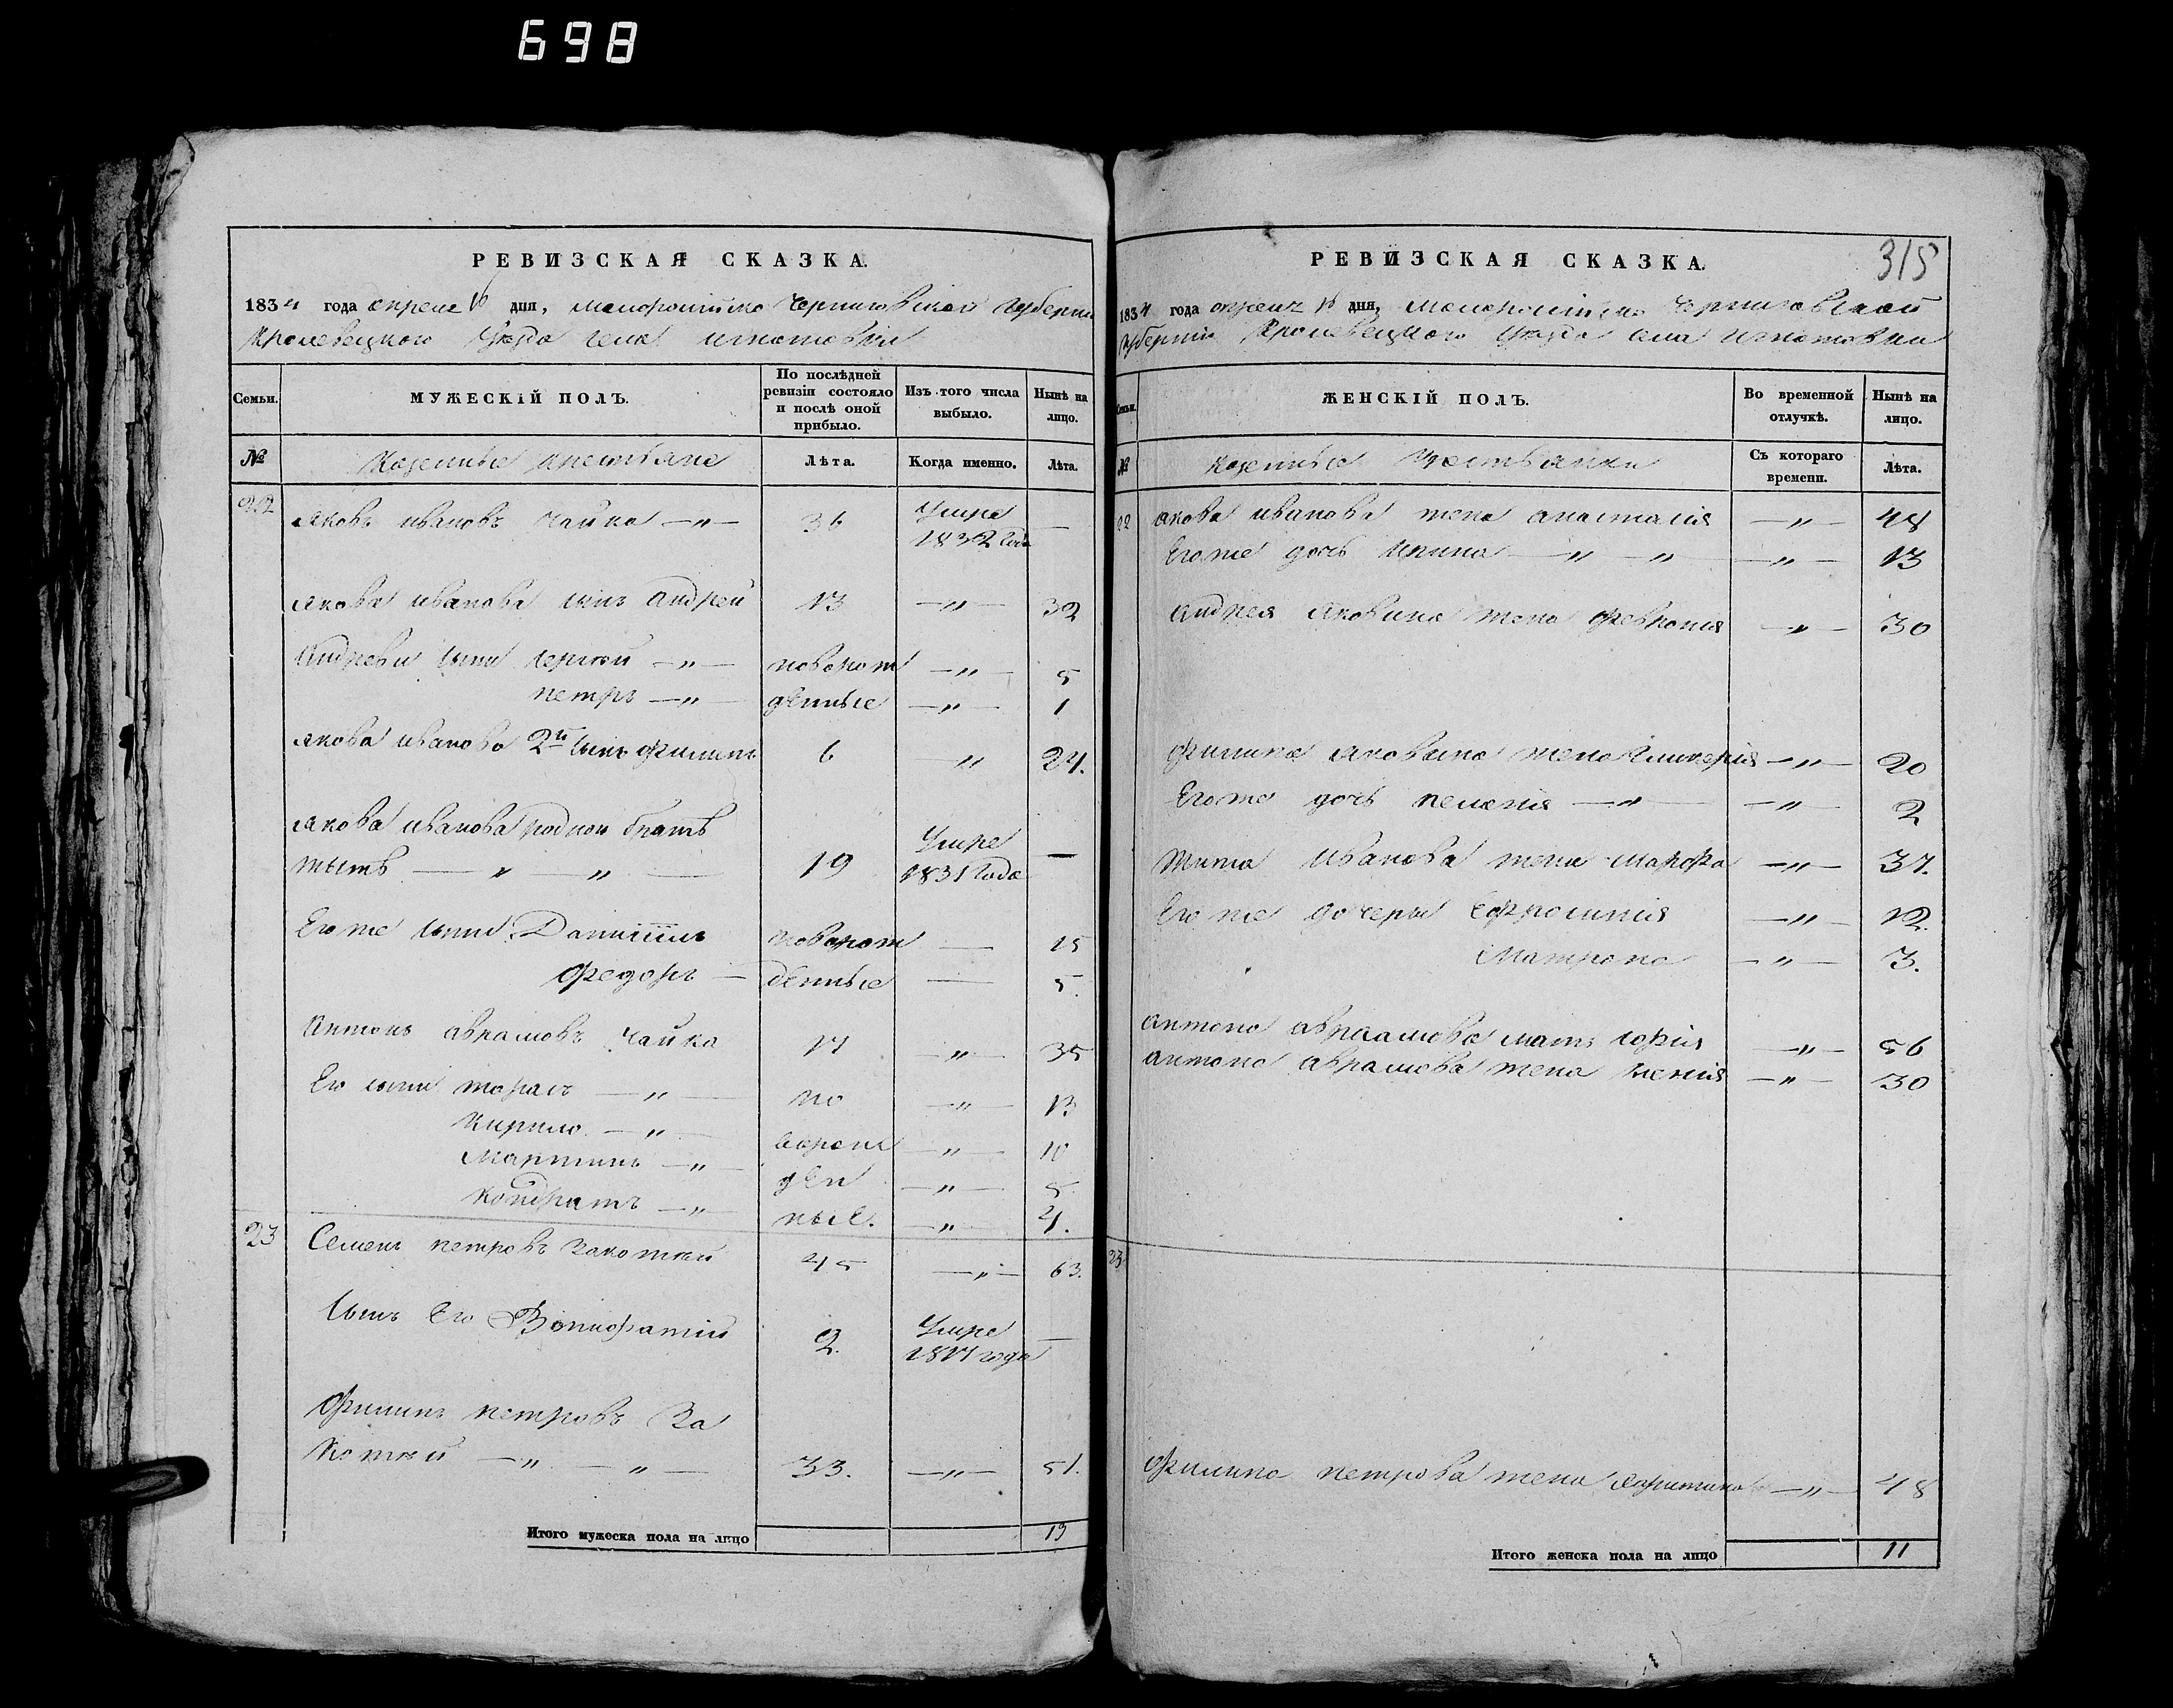 698
РЕВИЗСКАЯ СКАЗКА.
1834 года апреля дня, Малоросийско Черниговской Губернии
Кролевецкого Уезда села Игнатовки
Семьи.
МУЖЕСКІЙ ПОЛЪ.
По послѣдней ревизіи состояло и послѣ оной прибыло.
Изъ того числа выбыло.
Нынѣ на лицо.
№
Казенные крестьяне
Лѣта.
Когда именно.
Лѣта.
22 Яковъ Ивановъ Чайка —„— 36 Умре 1832 года —
Якова Иванова сынъ Андрей 13 —„— 32
Андреви сыни Сергей —„— новорож —„— 5
Петръ —„— денные —„— 1
Якова Иванова 2й сынъ Филипъ 6 „ 24.
Якова Иванова родной братъ
Тытъ — „ — „ — 19 Умре 1831 года —
Его же сыни Даниилъ новорож — 15
Федоръ — денные — 5.
Антонъ Аврамовъ Чайка 17 —„— 35
Его сыни Тарасъ —„— но —„— 13
Кирило —„— ворож —„— 10
Мартинъ —„— ден —„— 5
Кондратъ —„ ные. —„— 4.
23 Семенъ Петровъ Закоткий 45 —„— 63.
Сынъ его Вонифатий 2. Умре 1817 года —
Филипъ Петровъ За
коткий —„— „ — 33. —„— 51.
Итого мужеска пола на лицо 13
315
РЕВИЗСКАЯ СКАЗКА.
1834 года апреля дня, Малоросийско Черниговской
Губернии Кролевецкого Уезда села Игнатовки
Семьи.
ЖЕНСКІЙ ПОЛЪ.
Во временной отлучкѣ.
Нынѣ на лицо.
№
Казенные крестьянки
Съ котораго времени.
Лѣта.
22 Якова Иванова жена Анастасия —„— 48
Его же дочь Ирина — „ — „ —„— 13
Андрея Яковина жена Феврония —„— 30
Филипа Яковина жена Гликерия —„— 20
Его же дочь Пелагия —„— —„— 2
Тита Иванова жена Марфа —„— 37.
Его же дочери Ефросиния —„— 12.
Матрона —„— 3.
Антона Авраамова мать София —„— 56
Антона Аврамова жена Ксения —„— 30
23
Филипа Петрова жена —„— 48
Итого женска пола на лицо 11